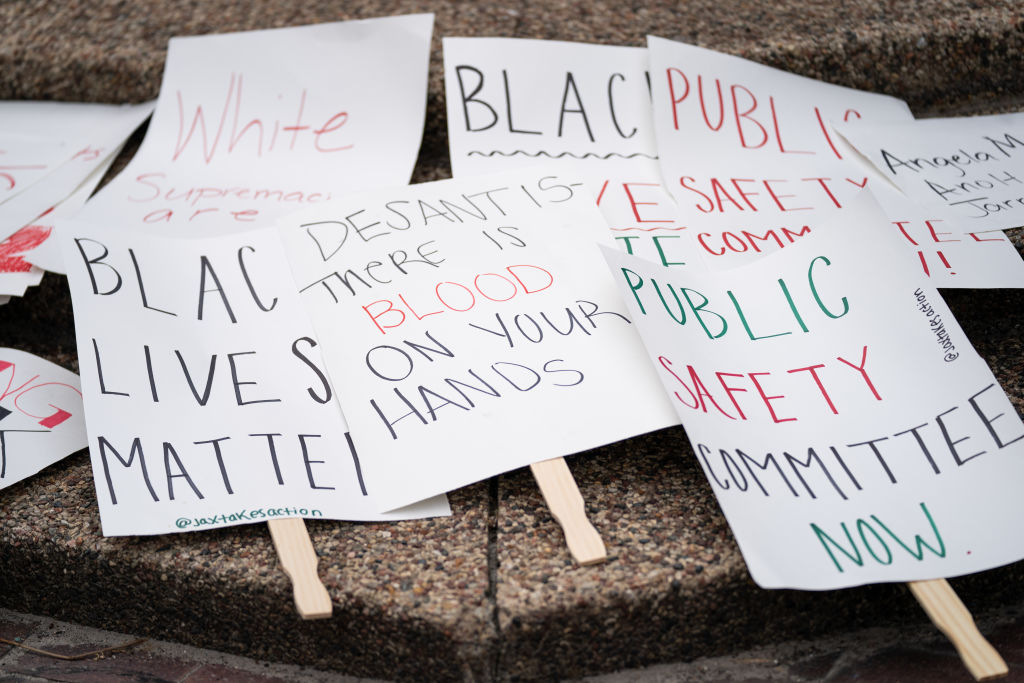 White
are
BLAC
LIVES
MATTE
@jaxtakesaction
DESANTIS-
THERE IS
BLOOD
ON YOUR
HANDS
BLAC
PUBLIC
SAFETY
COMM
!!
PUBLIC
SAFETY
COMMITTEE
NOW.
@jaxtakesaction
Angela M